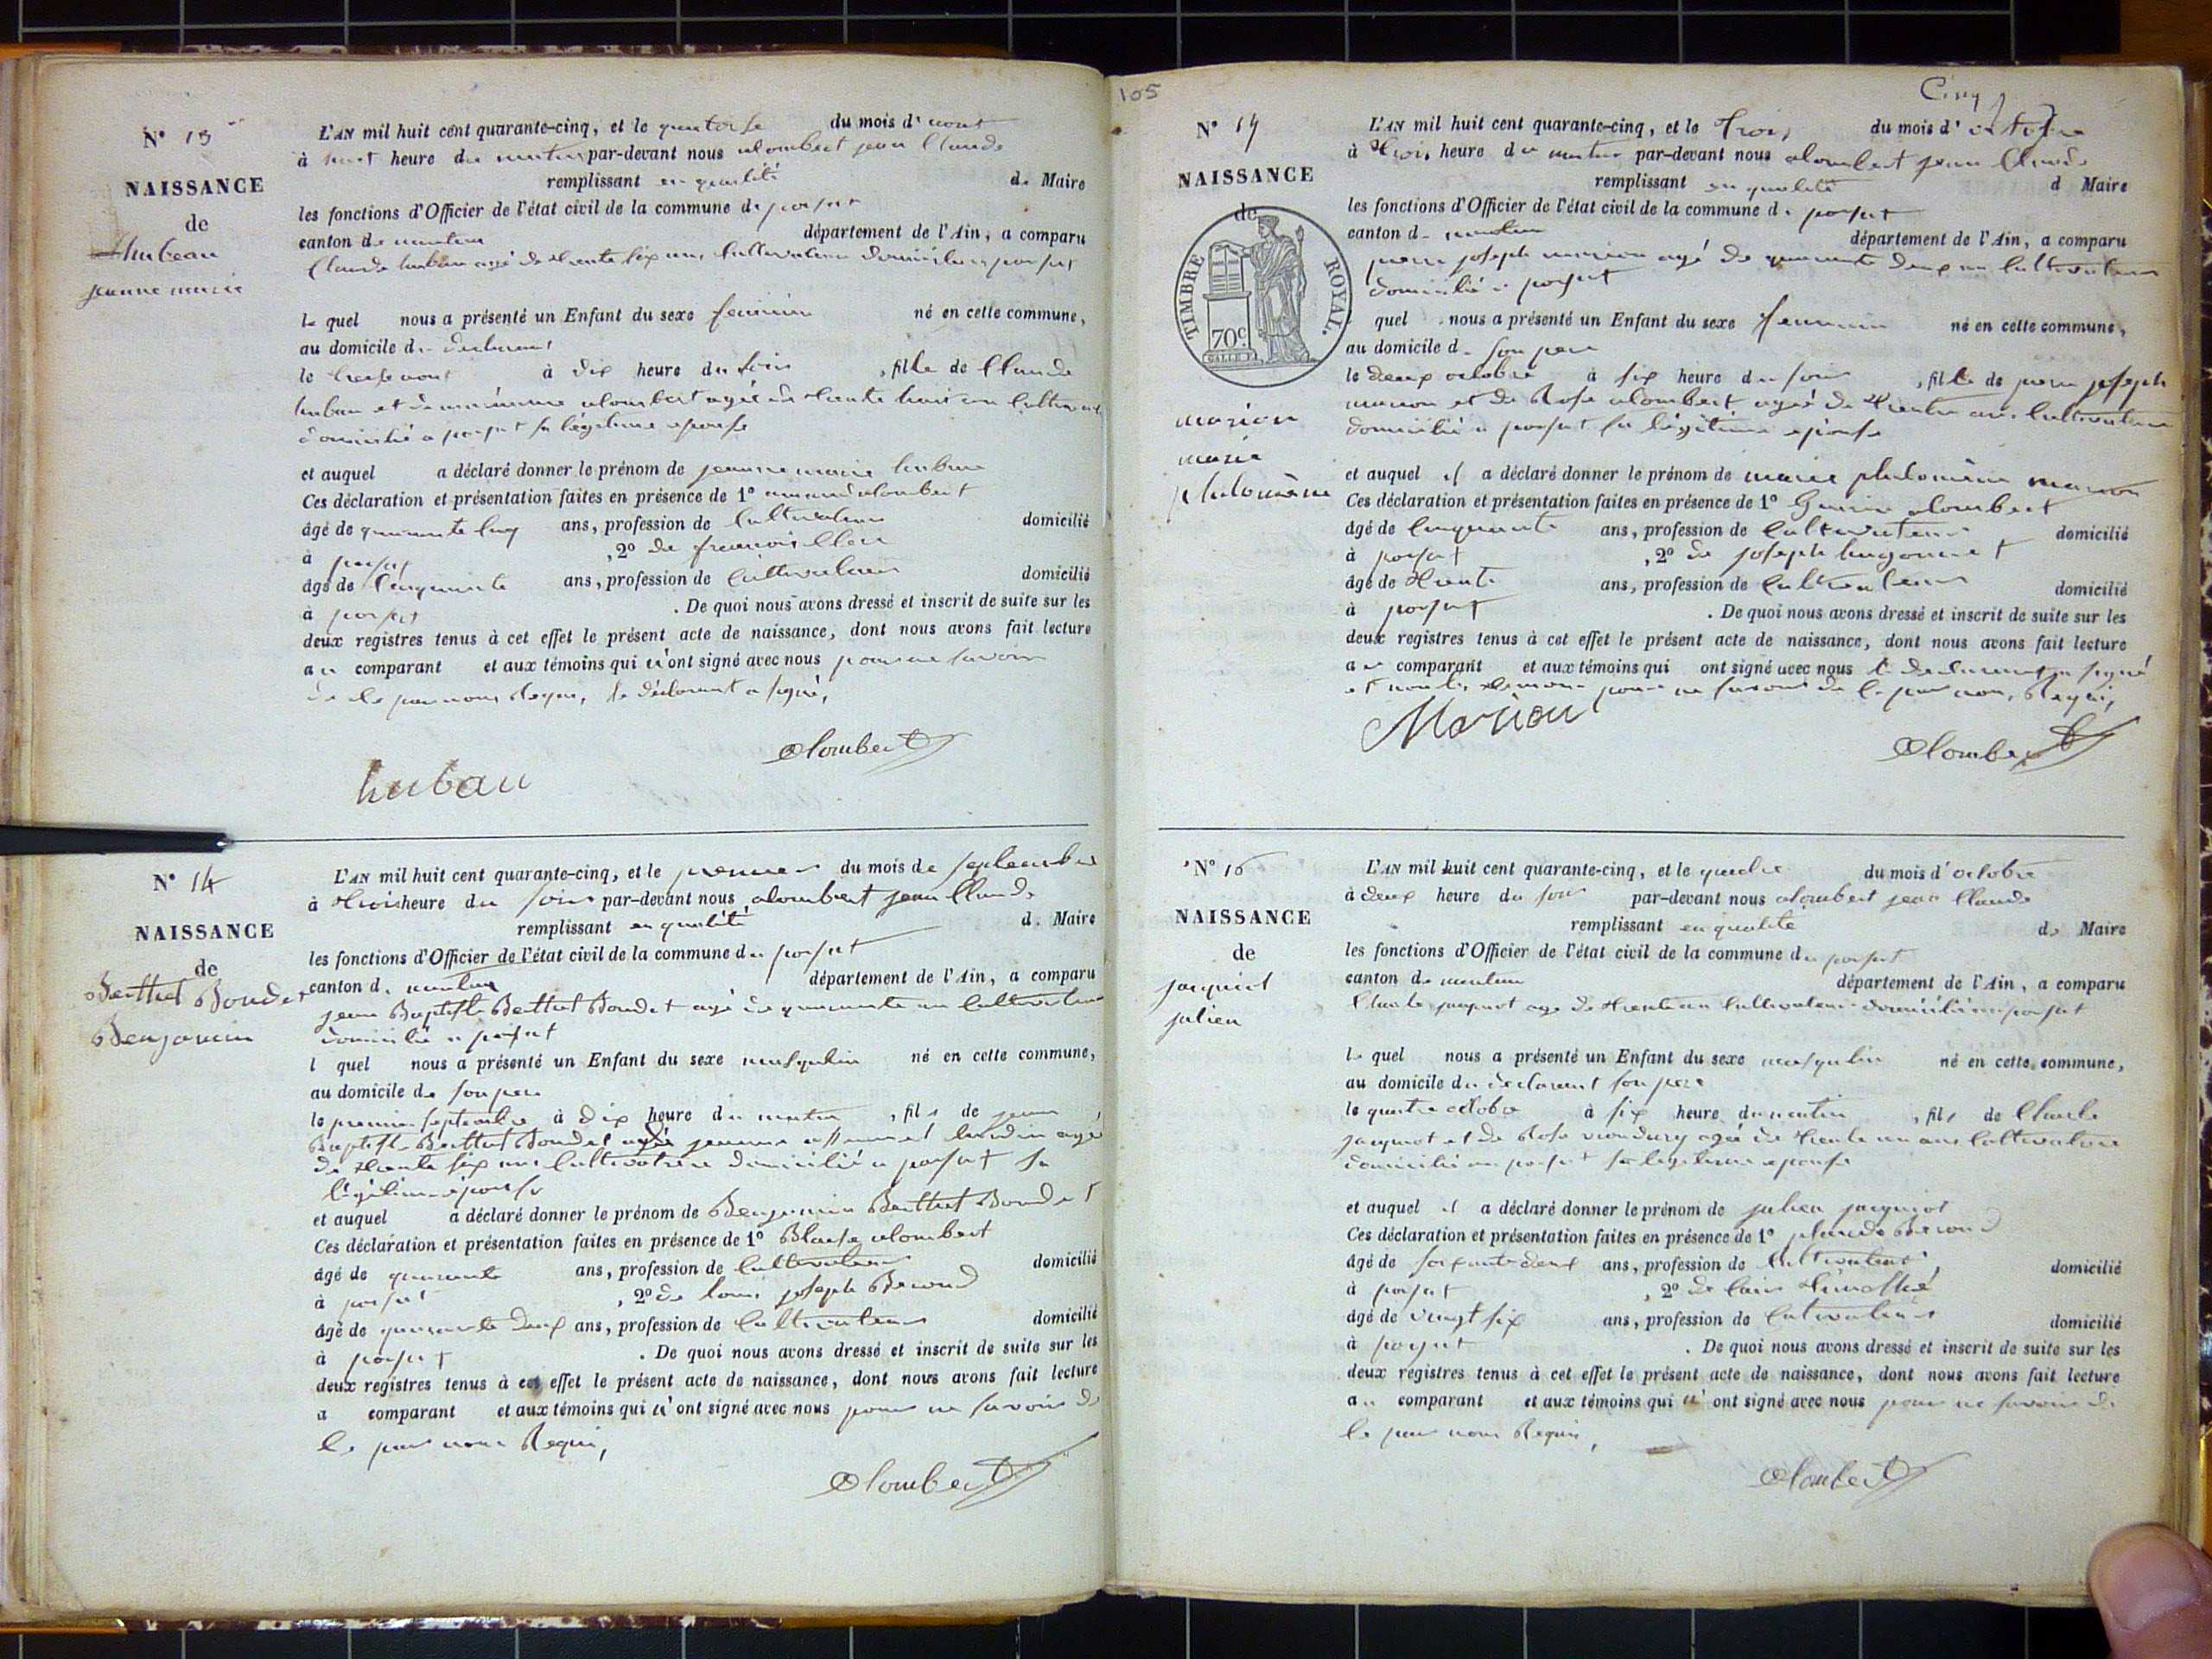 N° 13
NAISSANCE
de
hubeau
jeanne marie
L'AN mil huit cent quarante-cinq, et le quatorse du mois d' aout
à heure du matin par-devant nous alombert jean Claude
remplissant en qualité de Maire
les fonctions d'Officier de l'état civil de la commune de porsat
canton de département de l'Ain, a comparu
Claude huban agé de trente six ans Cultivateur domicilié a porsat
le quel nous a présenté un Enfant du sexe feminin né en cette commune,
au domicile du declarant
le treise aout à dix heure du soir , fille de Claude
huban et de alombert agée de trente trois ans Cultivat
domicilié a porsat sa légitime eponse
et auquel a déclaré donner le prénom de jeanne marie huban
Ces déclaration et présentation faites en présence de 1° alombert
âgé de quarante cinq ans, profession de Cultivateur domicilié
à porsat , 2° de francois
âgé de Cinquante ans, profession de Cultivateur domicilié
à porsat . De quoi nous avons dressé et inscrit de suite sur les
deux registres tenus à cet effet le présent acte de naissance, dont nous avons fait lecture
au comparant et aux témoins qui n'ont signé avec nous pour ne savoir
de le par nous Requi, le déclarant a signé,
alombert
hubau
N° 14
NAISSANCE
de
Berthet Boudet
Benjamin
L'AN mil huit cent quarante-cinq, et le premier du mois de septembre
à trois heure du soir par-devant nous alombert jean Claude
remplissant en qualité de Maire
les fonctions d'Officier de l'état civil de la commune de porsat
canton de département de l'Ain, a comparu
jean Baptiste Berthet Boudet agé de quarante an Cultivateur
domicilié a porsat
l quel nous a présenté un Enfant du sexe masqulin né en cette commune,
au domicile de son pere
le premier septembre à dix heure du matin , fils de jean
Baptiste Berthet Boudet jeanne agé
de trente six ans Cultivatrice domicilié a porsat sa
légitime eponse
et auquel a déclaré donner le prénom de Benjamin Berthet Boudet
Ces déclaration et présentation faites en présence de 1° Blaise alombert
âgé de quarante ans, profession de Cultivateur domicilié
à porsat , 2° de louis joseph Beroud
âgé de quarante deux ans, profession de Cultivateur domicilié
à porsat . De quoi nous avons dressé et inscrit de suite sur les
deux registres tenus à cet effet le présent acte de naissance, dont nous avons fait lecture
a comparant et aux témoins qui n'ont signé avec nous pour ne savoir de
le par nous Requi,
alombert
105
Cinq
N° 14
NAISSANCE
de
TIMBRE ROYAL.
70c
marion
marie
philomène
L'AN mil huit cent quarante-cinq, et le trois du mois d' octobre
à trois heure du matin par-devant nous alombert jean Claude
remplissant en qualité d Maire
les fonctions d'Officier de l'état civil de la commune de porsat
canton d département de l'Ain, a comparu
joseph marion agé de quarante deux an Cultivateur
domicilié a porsat
quel nous a présenté un Enfant du sexe feminin né en cette commune,
au domicile de son pere
le deux octobre à six heure du soir , fille de joseph
marion et de Rose alombert agée de trente ans Cultivatrice
domicilié a porsat sa légitime eponse
et auquel il a déclaré donner le prénom de marie philomène marion
Ces déclaration et présentation faites en présence de 1° alombert
âgé de Cinquante ans, profession de Cultivateur domicilié
à porsat , 2° de joseph hugonnet
âgé de trente ans, profession de Cultivateur domicilié
à porsat . De quoi nous avons dressé et inscrit de suite sur les
deux registres tenus à cet effet le présent acte de naissance, dont nous avons fait lecture
au comparant et aux témoins qui ont signé avec nous le declarant a signé
et non les temoins pour ne savoir de le par nous Requi,
Marion
alombert
N° 16
NAISSANCE
de
jacquiot
julien
L'AN mil huit cent quarante-cinq, et le quatre du mois d' octobre
à deux heure du soir par-devant nous alombert jean Claude
remplissant en qualité de Maire
les fonctions d'Officier de l'état civil de la commune de porsat
canton de département de l'Ain, a comparu
jaquiot age de trente an Cultivateur domicilié a porsat
le quel nous a présenté un Enfant du sexe masqulin né en cette commune,
au domicile du declarant son pere
le quatre octobre à six heure du matin , fils de
jaquiot et de Rose agée de trente un ans Cultivatrice
domicilié a porsat sa legitime eponse
et auquel il a déclaré donner le prénom de julien jacquiot
Ces déclaration et présentation faites en présence de 1° Beroud
âgé de soixante deux ans, profession de Cultivateur domicilié
à porsat , 2° de
âgé de vingt six ans, profession de Cultivateur domicilié
à porsat . De quoi nous avons dressé et inscrit de suite sur les
deux registres tenus à cet effet le présent acte de naissance, dont nous avons fait lecture
au comparant et aux témoins qui n'ont signé avec nous pour ne savoir de
le par nous Requi,
alombert